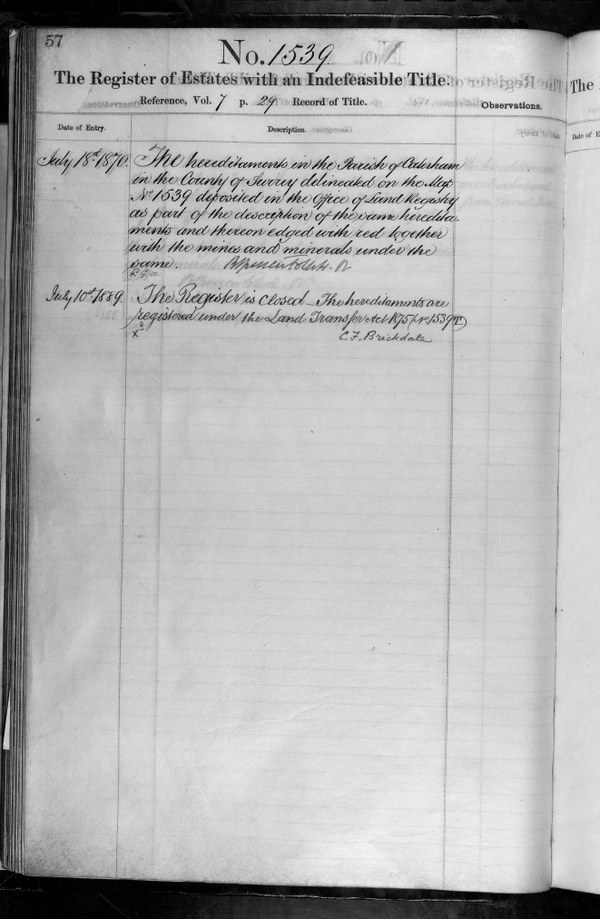 57
No. 1539
The Register of Estates with an Indefeasible Title.
Reference, Vol. 7 p. 29 Record of Title.
Observations.
Date of Entry.
Description.
July 18th 1870.
The hereditaments in the Parish of Caterham
in the County of Surrey delineated on the Map
No. 1539 deposited in the Office of Land Registry
as part of the description of the same heredita-
ments and thereon edged with red together
with the mines and minerals under the
same.
July 10th 1889.
The Register is closed. The hereditaments are
registered under the Land Transfer Act 1875
C. F. Brickdale
The
Date of E